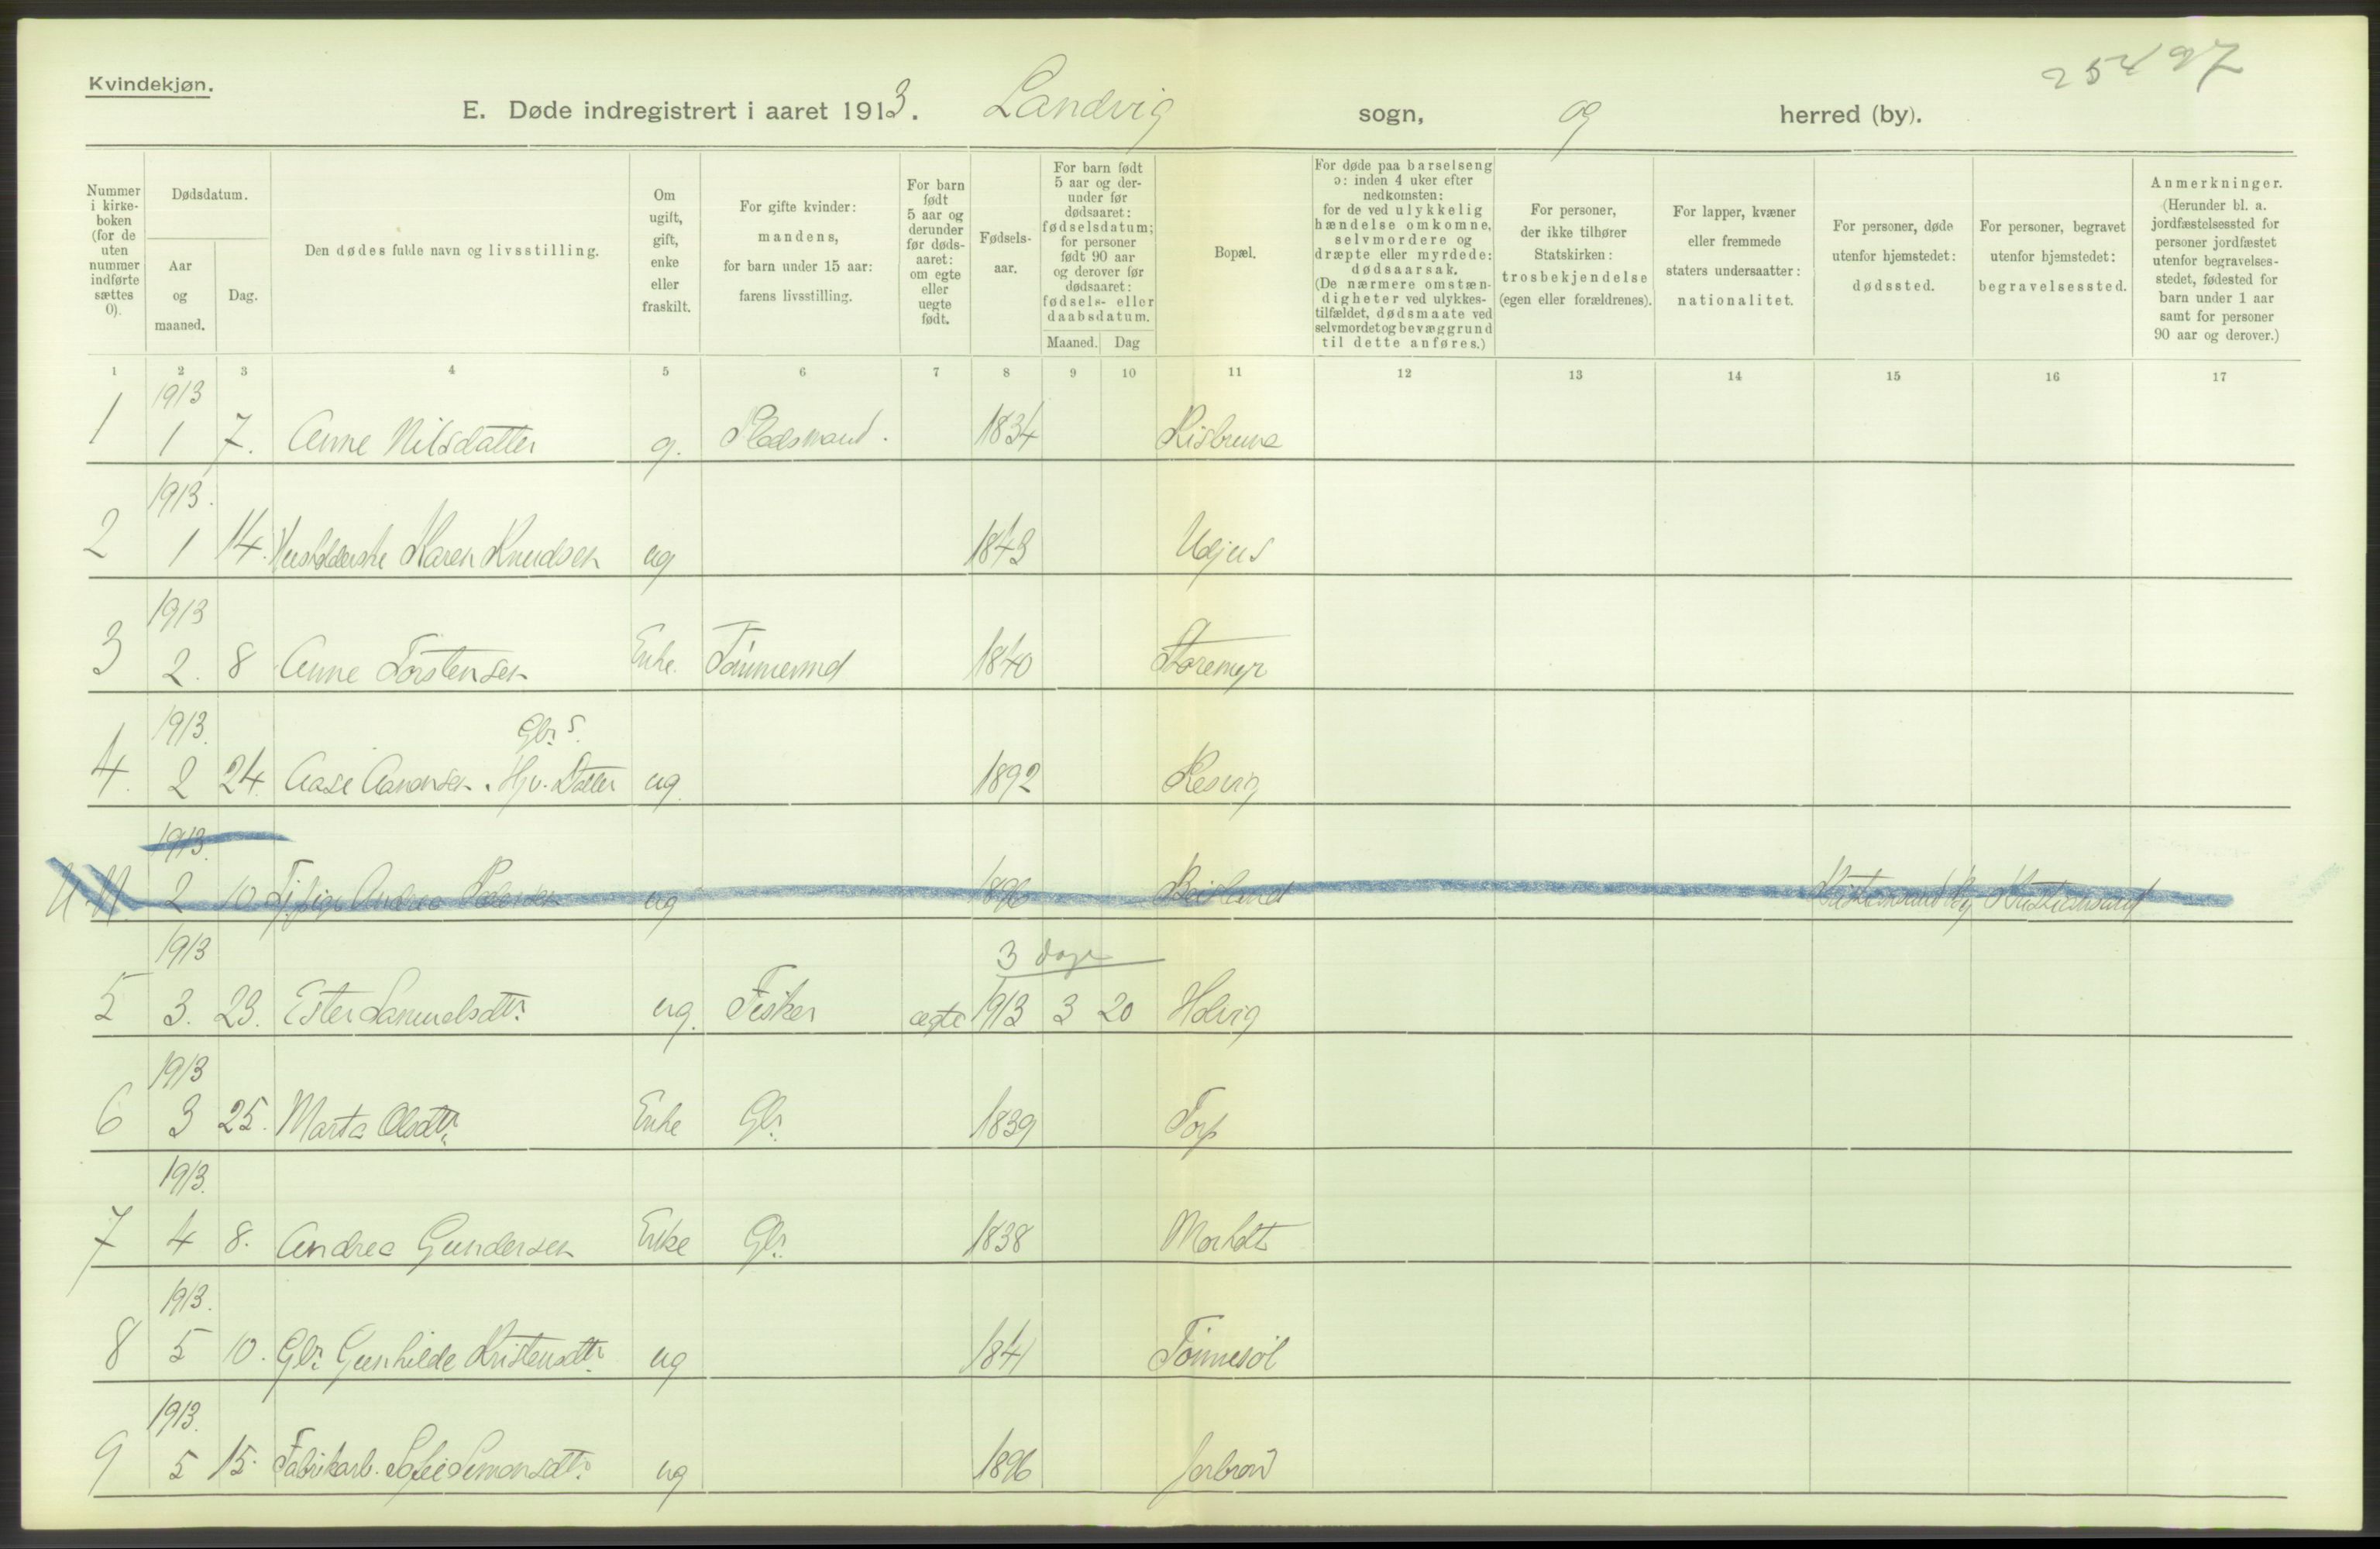 Kvindekjøn.
25497
E. Døde indregistrert i aaret 1913. Landvig sogn, og herred (by).
Nummer i kirkeboken (for de uten nummer indførte sættes 0).
Dødsdatum.
Aar og maaned.
Dag.
Den dødes fulde navn og livsstilling.
Om ugift, gift, enke eller fraskilt.
For gifte kvinder: mandens, for barn under 15 aar: farens livsstilling.
For barn født 5 aar og derunder før dødsaaret: om egte eller uegte født.
Fødselsaar.
For barn født 5 aar og derunder før dødsaaret: fødselsdatum; for personer født 90 aar og derover før dødsaaret: fødsels- eller daabsdatum.
Maaned. Dag
Bopæl.
For døde paa barselseng ɔ: inden 4 uker efter nedkomsten: for de ved ulykkelig hændelse omkomne, selvmordere og dræpte eller myrdede: dødsaarsak. (De nærmere omstændigheter ved ulykkestilfældet, dødsmaate ved selvmordet og bevæggrund til dette anføres.)
For personer, der ikke tilhører Statskirken: trosbekjendelse (egen eller forældrenes).
For lapper, kvæner eller fremmede staters undersaatter: nationalitet.
For personer, døde utenfor hjemstedet: dødssted.
For personer, begravet utenfor hjemstedet: begravelsessted.
Anmerkninger. (Herunder bl. a. jordfæstelsessted for personer jordfæstet utenfor begravelsesstedet, fødested for barn under 1 aar samt for personer 90 aar og derover.)
1 2 3 4 5 6 7 8 9 10 11 12 13 14 15 16 17
1913
1 1 7. Anne Nilsdatter g. Pladsmand. 1834
1913.
2 1 14. Husholderske Karen Knudsen ug 1843 Udjus
1913
3 2. 8 Anne Torstensen Enke. Tømmermd 1840 Storemyr
1913. Gbr.s
4. 2 24. Aase Aanonsen. Hjv. Datter ug 1892 Resvig
1913.
2 10. Andrea Pedersen ug 1896 Kristiansand By Kristiansand
1913 3 dage
5 3. 23. Ester Samuelsdtr. ug. Fisker ægte 1913 3 20 Holvig
1913
6 3 25. Marta Olsdtr. Enke Gbr. 1839 Torp
1913.
7 4 8. Andrea Gundersen Enke Gbr. 1838 Morholt
1913.
8 5 10. Gbr. Gunhilde Kristensdtr. ug 1841 Tønnesøl
1913.
9 5 15. Fabrikarb. Sofie Simonsdtr. ug 1896